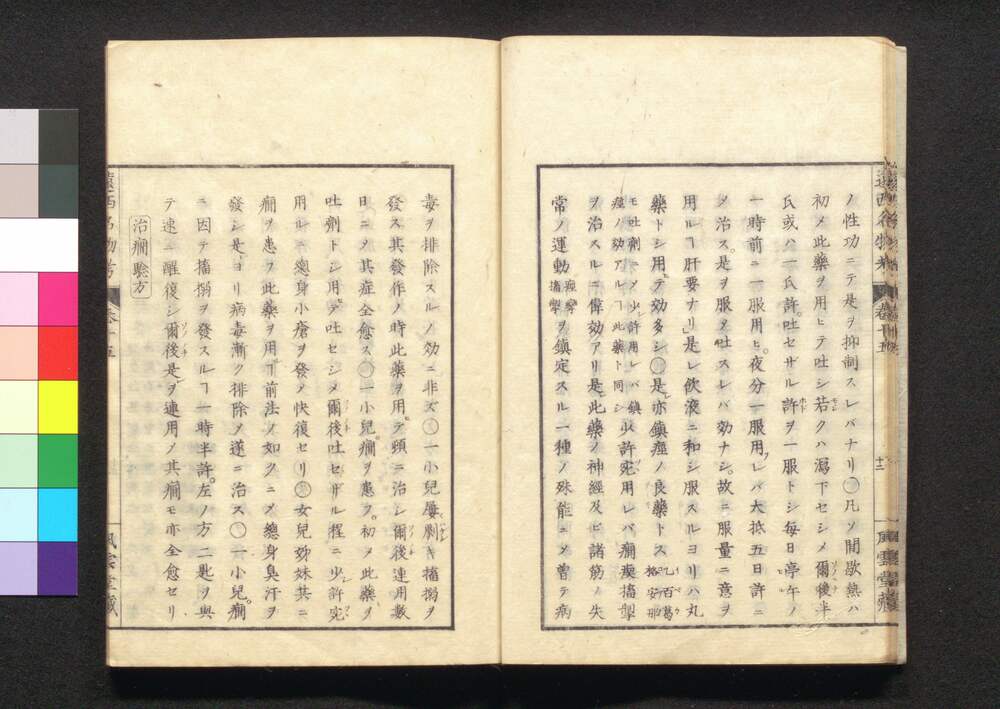 ノ性功ニテ是ヲ抑制スレバナリ○凡ソ間歇熱ハ
初メ此藥ヲ用ヒテ吐シ若クハ瀉下セシメ爾後半
氏或ハ一氏許吐セザル許ヲ一服トシ每日亭午ノ
一時前ニ一服用ヒ夜分一服用フレバ大抵五日許ニ
〆治ス是ヲ服〆吐スレバ効ナシ故ニ服量ニ意ヲ
用ルヿ肝要ナリ是レ飲液ニ和シ服スルヨリハ丸
藥トシ用テ効多シ○是レ亦鎮痙ノ良藥トス
乙百葛
格安那
モ吐劑ニ〆少許用レバ鎮
痙ノ効アルヿ此藥ト同シ
少許宛用レバ癇瘈搐掣
ヲ治スルニ偉効アリ是レ此藥ノ神經及ビ諸筋ノ失
常ノ運動
瘈攣
搐攣
ヲ鎮定スル一種ノ殊能ニ〆曾テ病
毒ヲ排除スルノ効ニ非ズ○一小兒屢劇キ搐搦ヲ
發ス其發作ノ時此藥ヲ用テ頓ニ治シ爾後連用數
日ニ〆其症全愈ス○一小兒癇ヲ患フ初メ此藥ヲ
吐劑トシ用テ吐セシメ爾後吐セザル程ニ少許宛
用ルニ總身小瘡ヲ發〆快復セリ○女兒姊妹共ニ
癇ヲ患フ此藥ヲ用ルヿ前法ノ如クニ〆總身臭汗ヲ
發シ是ヨリ病毒漸ク排除〆遂ニ治ス○一小兒癇
ニ因テ搐搦ヲ發スルヿ一時半許左ノ方二匙ヲ與
テ速ニ醒復シ爾後是ヲ連用〆其癇モ亦全愈セリ
治癇驗方
遠西名物考
卷十五
十二
風雲堂藏